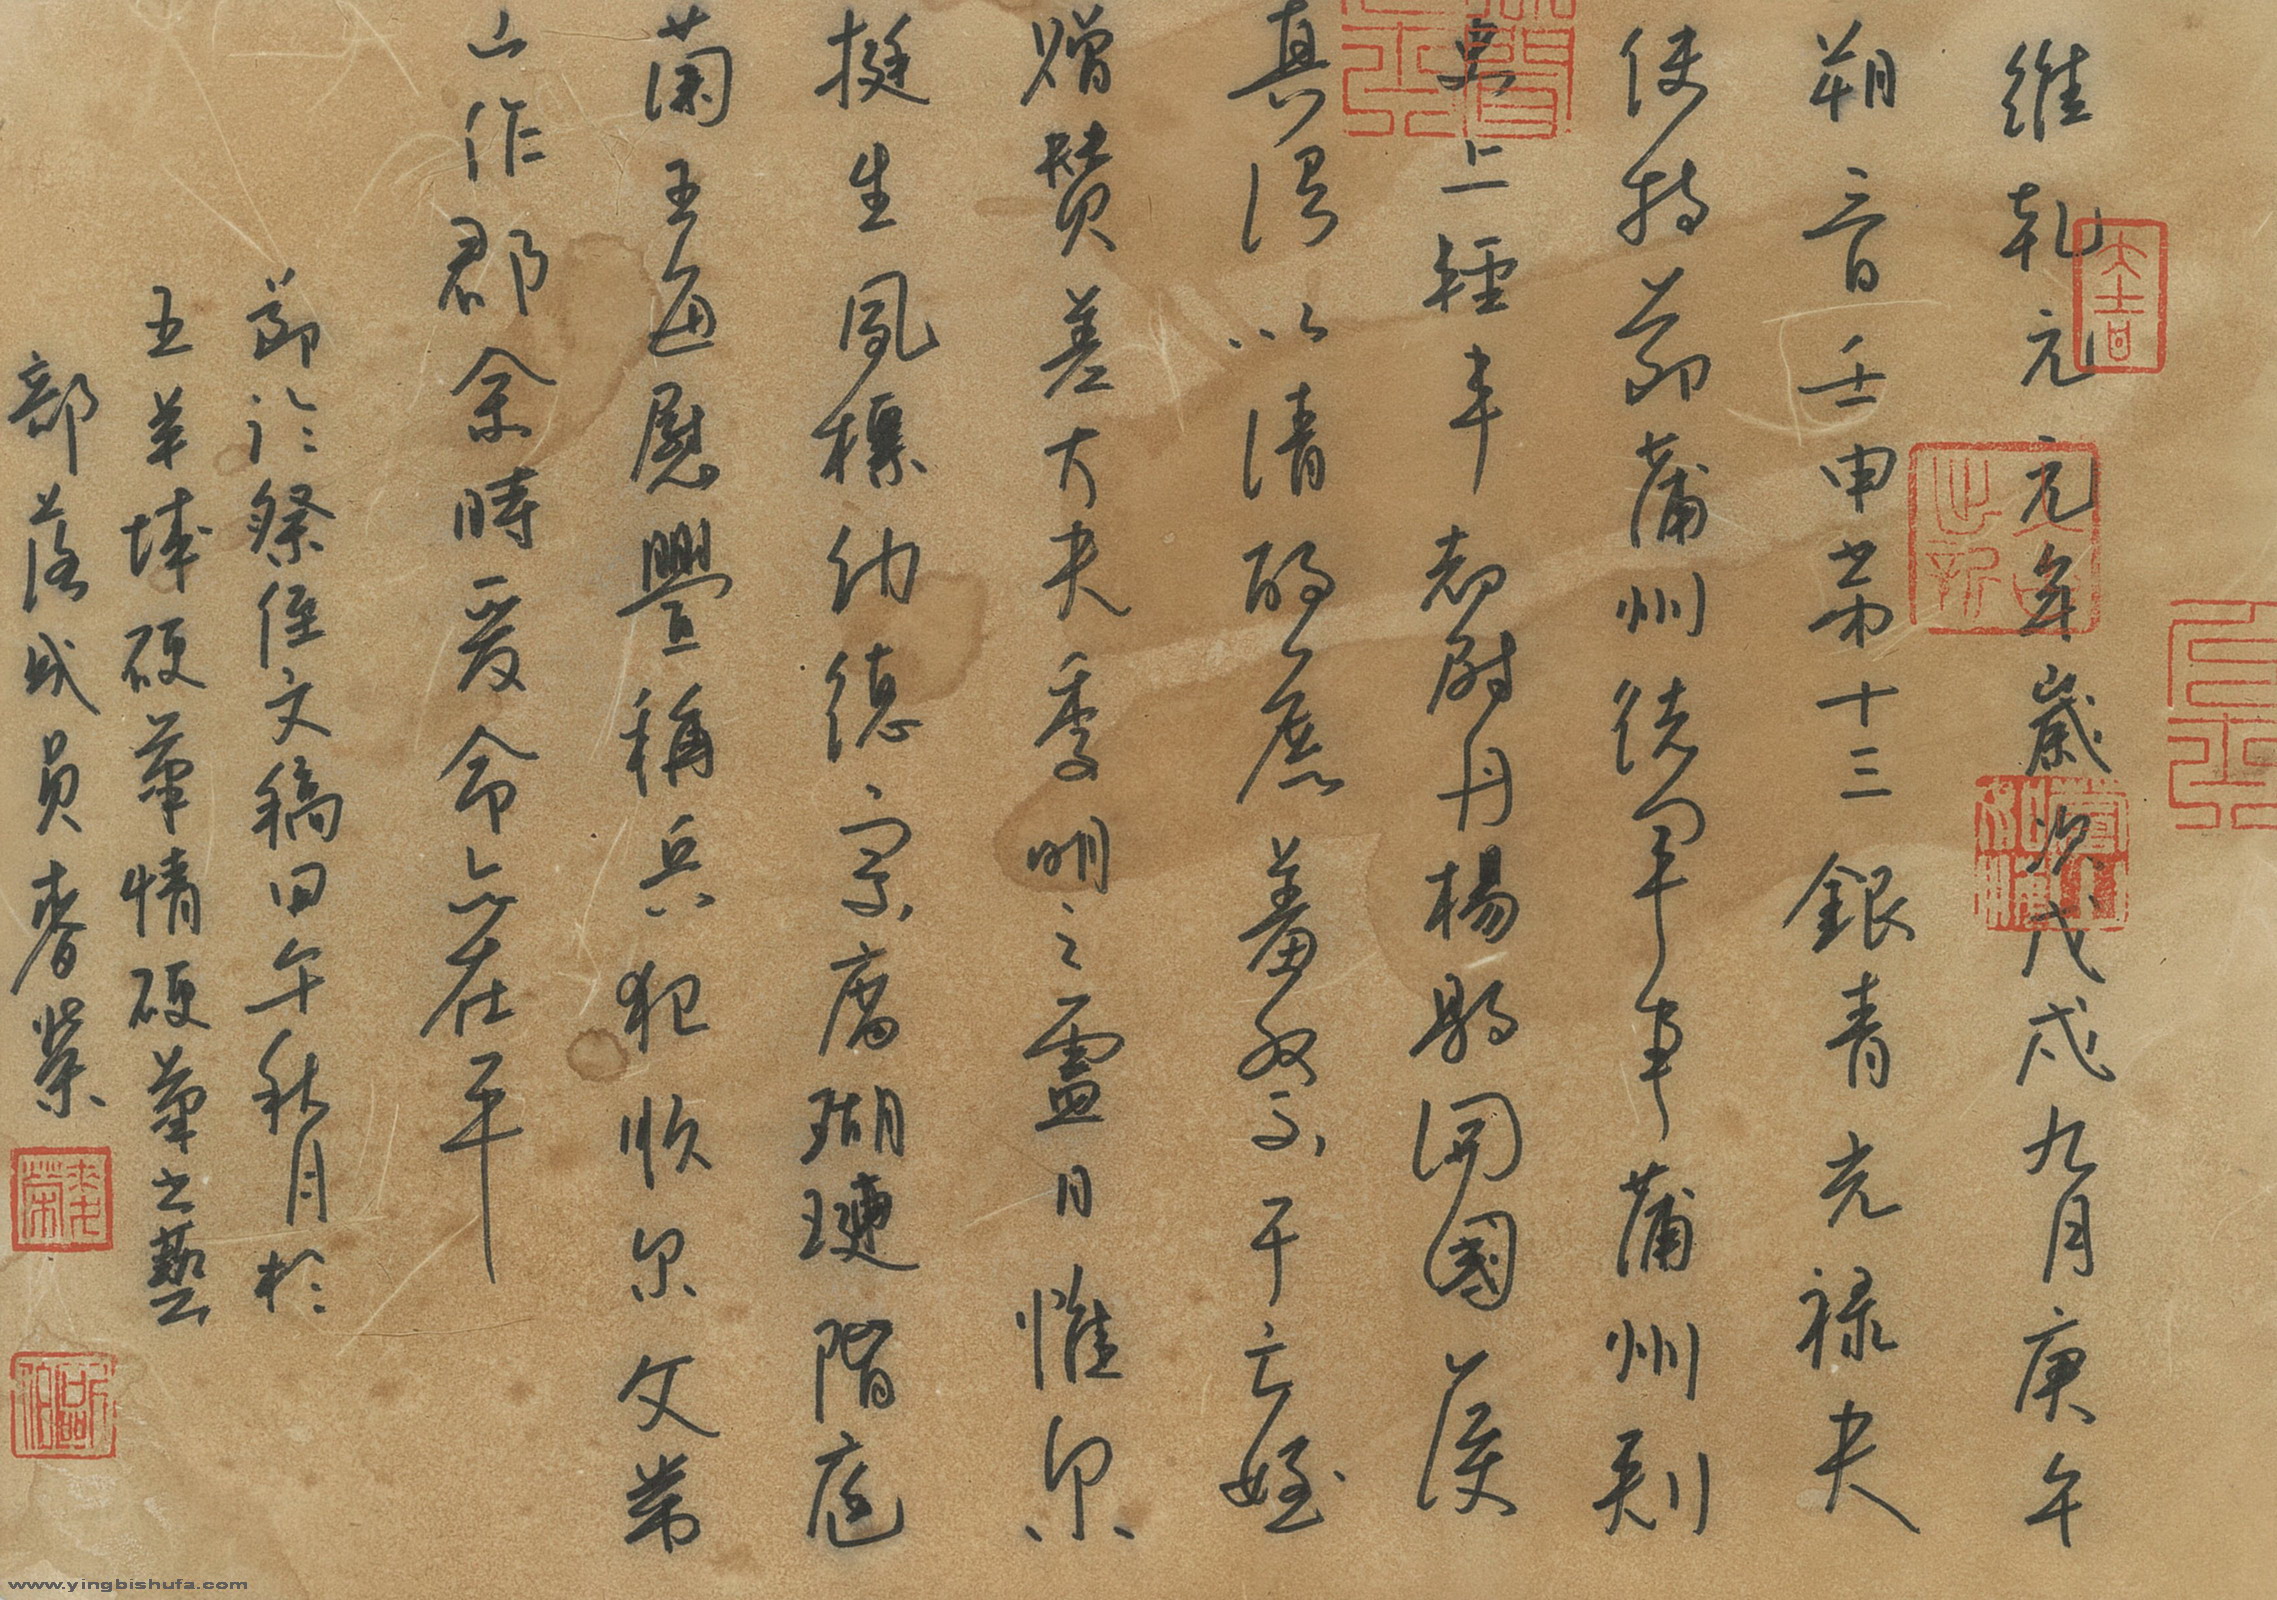 維乾元元年歲次戊戌九月庚午
朔三日壬申第十三銀青光祿夫
使持節蒲州諸軍事蒲州刺
史上輕車都尉丹楊縣開國侯
真卿以清酌庶羞祭于亡姪
贈贊善大夫季明之靈曰惟尔
挺生夙標幼德宗廟瑚璉階庭
蘭玉每慰豐稱兵犯順尔父常
山作郡余時受命亦在平
節
祭侄文稿田午秋月於
五羊城硬筆情硬筆之藝
部落成員麥榮
大吉
www.yingbishufa.com